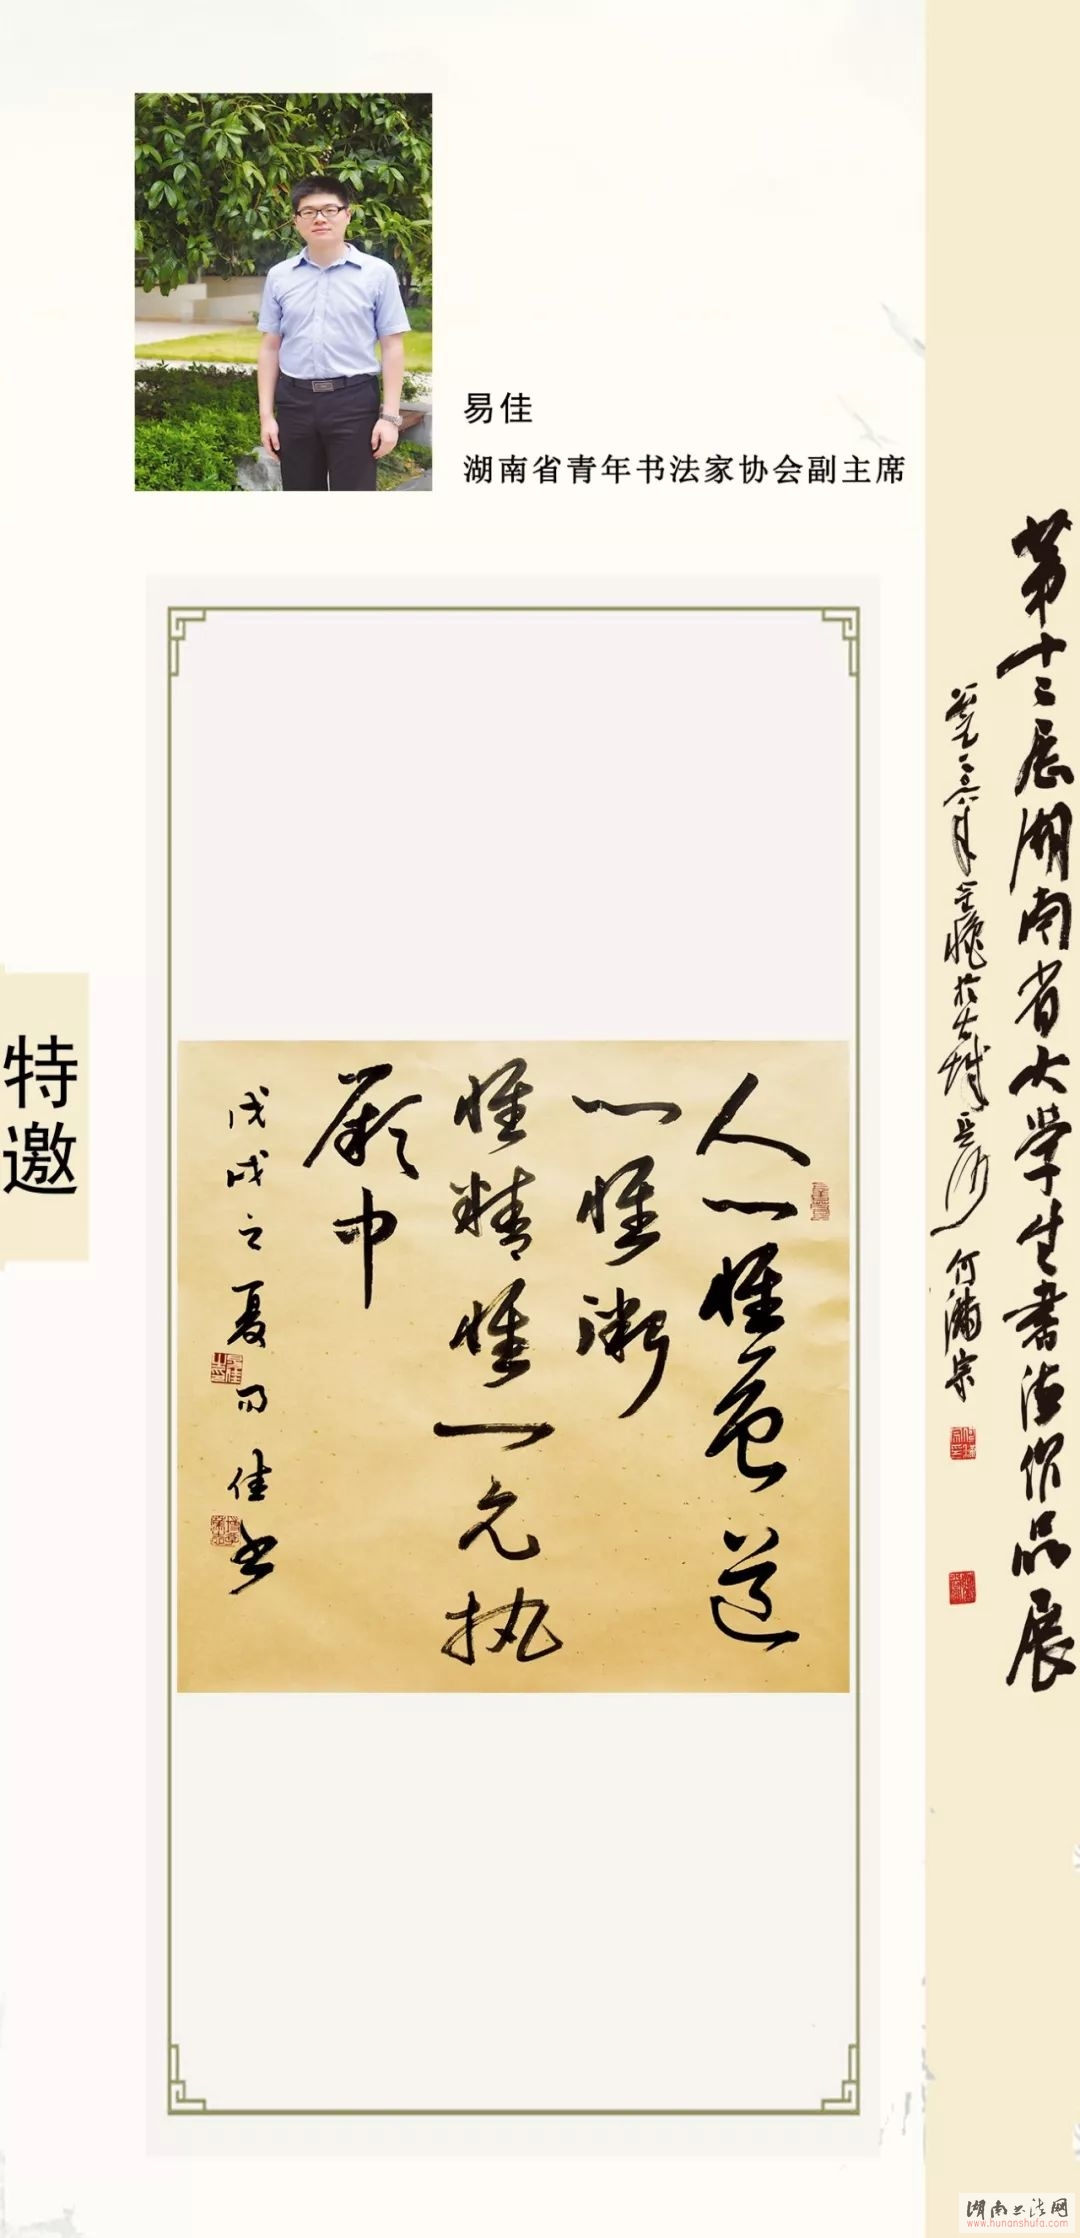 易佳
湖南省青年书法家协会副主席
特邀
人心惟危道
心惟微
惟精惟一允执
厥中
戊戌之夏易佳书
第十二届湖南省大学生书法作品展
於古城長沙 何满宗
湖南书法网
www.hunanshufa.com